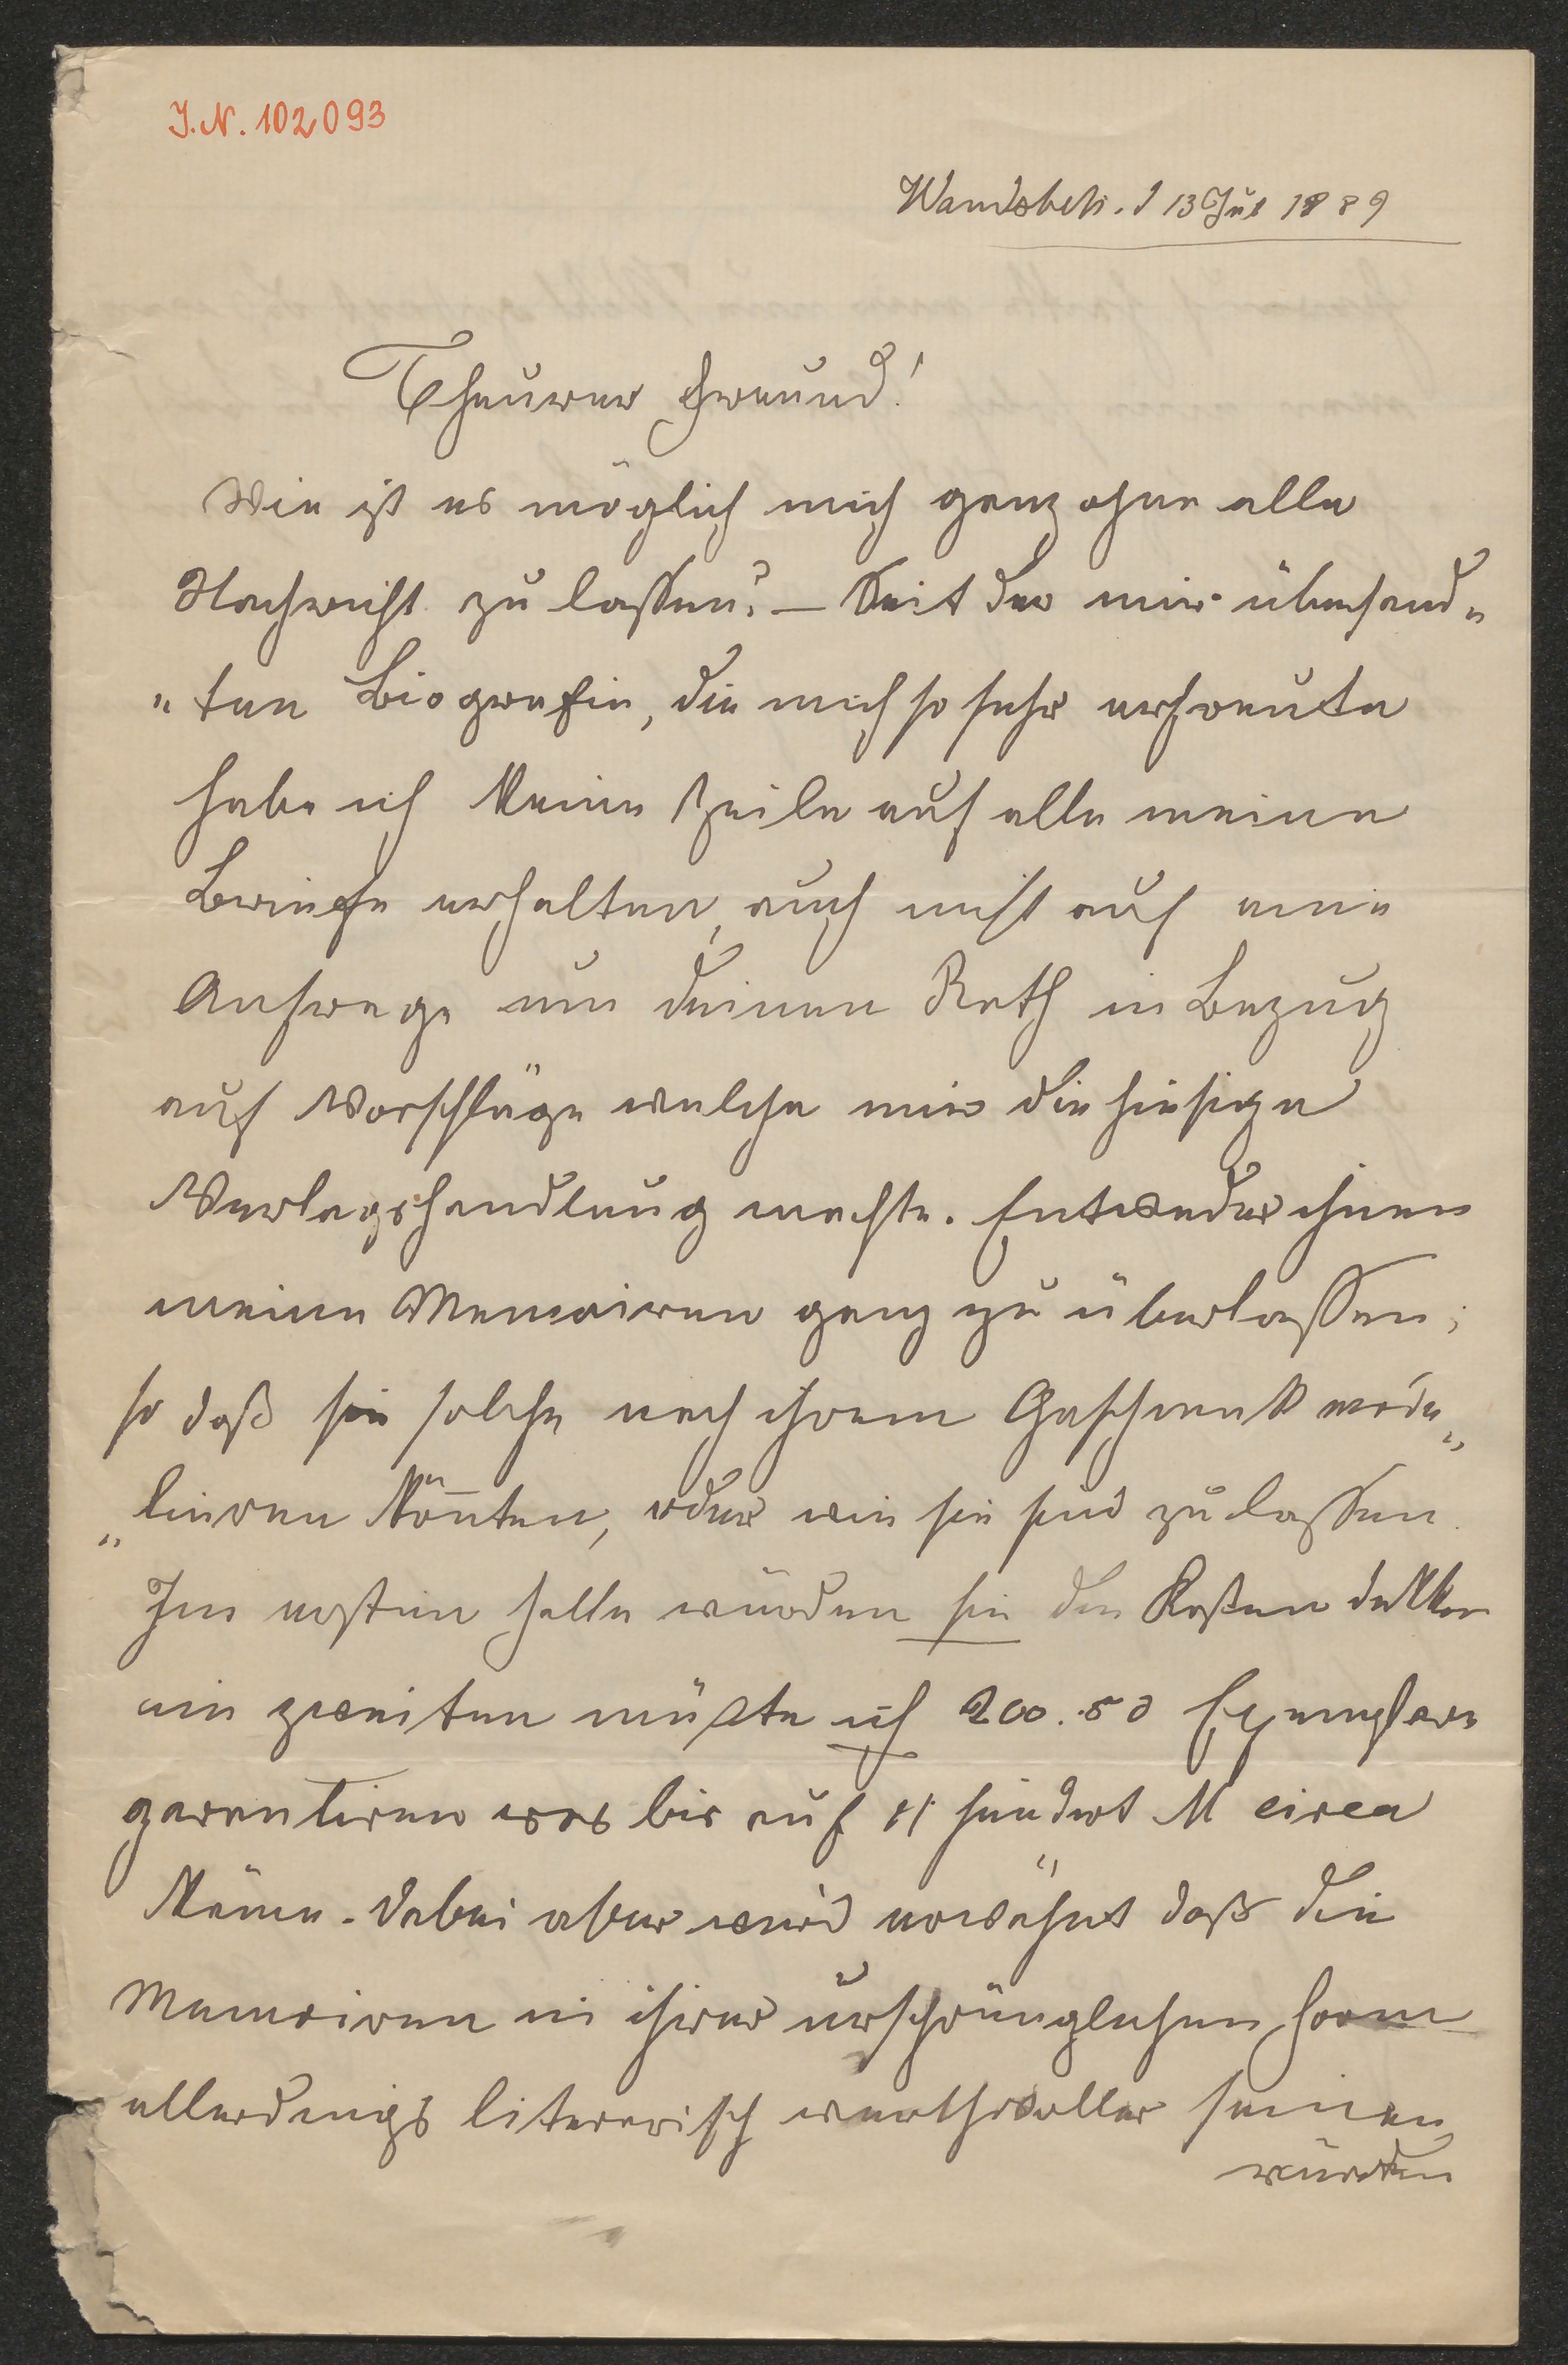 J.N. 102093
Wandsbek. d 13 Jul 1889
Theurer Freund!
Wie ist es möglich mich ganz ohne alle
Nachricht zu lassen? – Seit der mir übersand„
„ten Biografie, die mich so sehr erfreute
habe ich keine Zeile auf alle meine
Briefe erhalten, auch nicht auf eine
Anfrage um deinen Rath in Bezug
auf Vorschläge welche mir die hiesige
Verlagshandlung machte. Entweder ihnen
meine Memoiren ganz zu überlassen;
so daß sie solche nach ihrem Geschmak mode„
„lieren könnten, oder wie sie sind zu lassen.
Im ersten Falle würden sie die Kosten decken
im zweiten müßte ich 200.50 Exemplare
garantiren was bis auf 11 hundert M circa
käme. Dabei aber wird erwähnt daß die
Memoiren in ihrer ursprünglichen Form
allerdings literarisch werthvoller seien
würden